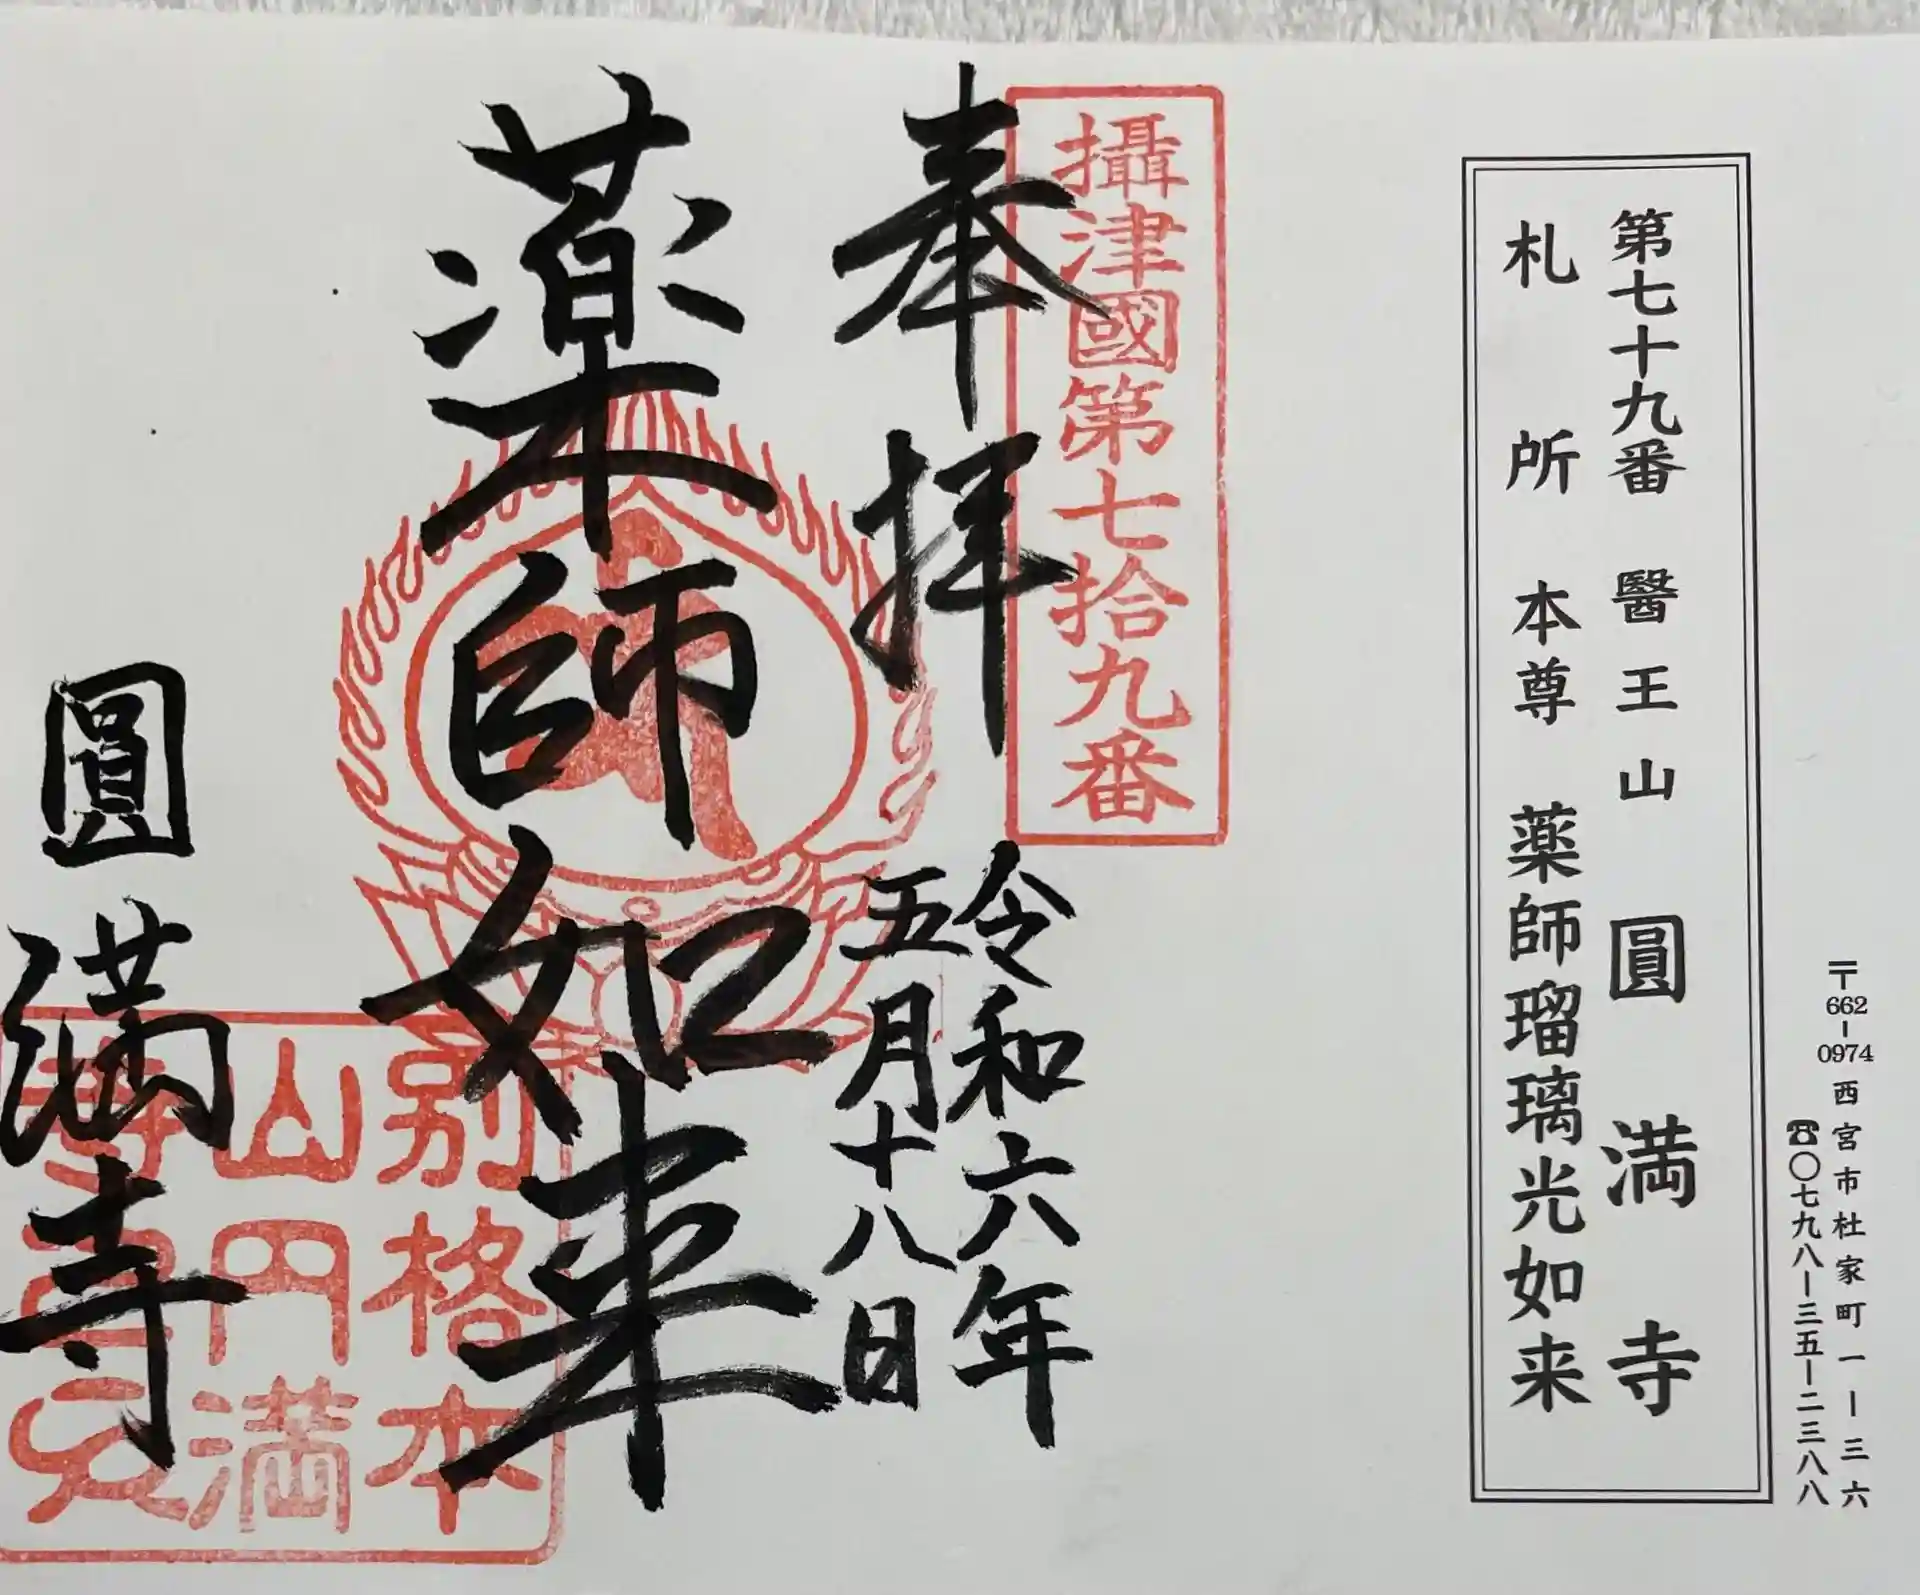 〒662-0974 西宮市杜家町一ー三六
☎〇七九八ー三五ー二三八八
第七十九番 醫王山 圓満寺
札所本尊 薬師瑠璃光如来
攝津國第七拾九番
奉拝
令和六年
五月十八日
薬師如来
別格本
山円満
寺
圓満寺